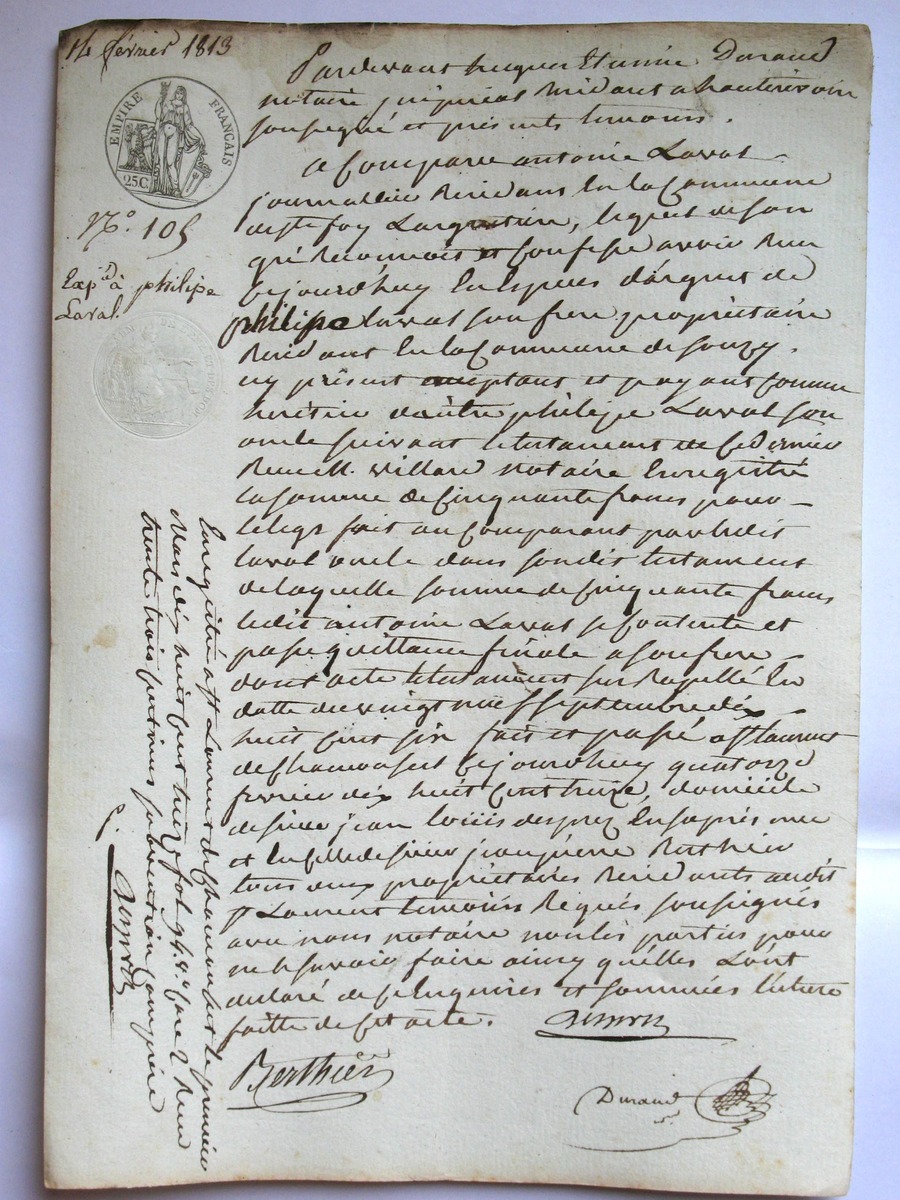 14 février 1813
EMPIRE FRANÇAIS
25C.
N.º 105
Exp.d à philipe
Laval.
Pardevant Etienne Durand
notaire impérial Résidant a hauterivoire
soussigné et présents temoins.
a Comparu antoine Laval
journallier Résidant En la Commune
de ste foy Largentiere, lequel de son
gré Reconnoit et Confesse avoir Reçu
Cejourdhuy En Espèces d'argent de
philipe Laval son frere propriétaire
Résidant En la Commune de souzy.
icy présent acceptant et payant Comme
heritier d'autre philipe Laval son
oncle suivant le testament de ce dernier
Reçu M. villard notaire Enregistré
la somme de Cinquante francs pour
le legs fait au Comparant par ledit
laval oncle dans son dit testament
de laquelle somme de Cinquante francs
ledit antoine Laval se Contente et
passe quittance finale a son frere
dont acte le testament sus Rappellé En
datte du vingt neuf septembre dix
huit cent six fait et passé a st laurent
de Chamousset Cejourdhuy quatorze
fevrier dix huit Cent treize, domicile
de sieur jean louis desprez En sa présence
et En celle de sieur jean pierre Berthier
tous deux propriétaires Résidants audit
st Laurent temoins Requis soussignés
avec nous notaire non les parties pour
ne le savoir faire ainsy qu'elles L'ont
déclaré de ce Enquises et sommées lecture
faitte de cet acte.
Berthier
Durand
Enregistré a st Laurent de Chamousset le premier
Mars dix huit Cent treize fol. 94. v.º Case 2 Reçu
trente trois centimes subvention Comprise